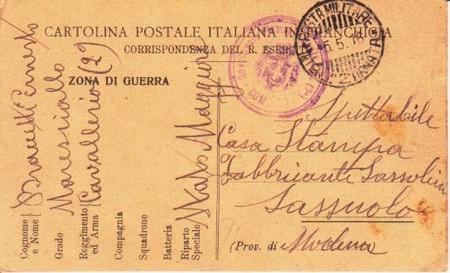 CARTOLINA POSTALE ITALIANA IN FRANCHIGIA
CORRISPONDENZA DEL R. ESERCITO
ZONA DI GUERRA
POSTA MILITARE
Cognome e Nome Ernesto
Grado Maresciallo
Reggimento ed Arma Cavalleria (2º)
Compagnia
Squadrone
Batteria
Riparto Speciale Stato Maggiore
Spettabile
Casa Stampa
Fabbricante Sassolini
Sassuolo
(Prov. di Modena